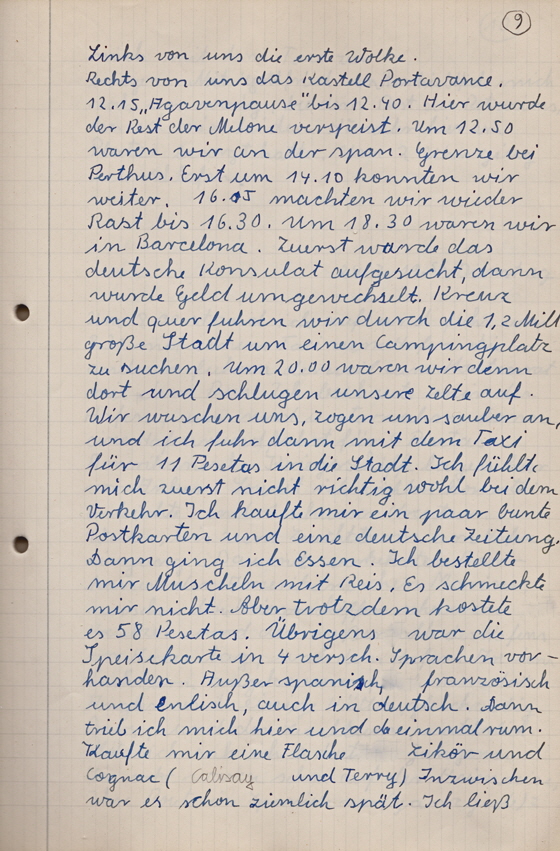 9
Links von uns die erste Wolke.
Rechts von uns das Kastell Portavance.
12.15 „Agavenpause" bis 12.40. Hier wurde
der Rest der Melone verspeist. Um 12.50
waren wir an der span. Grenze bei
Perthus. Erst um 14.10 konnten wir
weiter. 16.05 machten wir wieder
Rast bis 16.30. Um 18.30 waren wir
in Barcelona. Zuerst wurde das
deutsche Konsulat aufgesucht, dann
wurde Geld umgewechselt. Kreuz
und quer fuhren wir durch die 1,2 Mill
große Stadt um einen Campingplatz
zu suchen. Um 20.00 waren wir denn
dort und schlugen unsere Zelte auf.
Wir wuschen uns, zogen uns sauber an,
und ich fuhr dann mit dem Taxi
für 11 Pesetas in die Stadt. Ich fühlte
mich zuerst nicht richtig wohl bei dem
Verkehr. Ich kaufte mir ein paar bunte
Postkarten und eine deutsche Zeitung.
Dann ging ich Essen. Ich bestellte
mir Muscheln mit Reis. Es schmeckte
mir nicht. Aber trotzdem kostete
es 58 Pesetas. Übrigens war die
Speisekarte in 4 versch. Sprachen vor-
handen. Außer spanisch, französisch
und enlisch, auch in deutsch. Dann
trieb ich mich hier und da einmal rum.
Kaufte mir eine Flasche Likör und
Cognac (Calisay und Terry) Inzwischen
war es schon ziemlich spät. Ich ließ